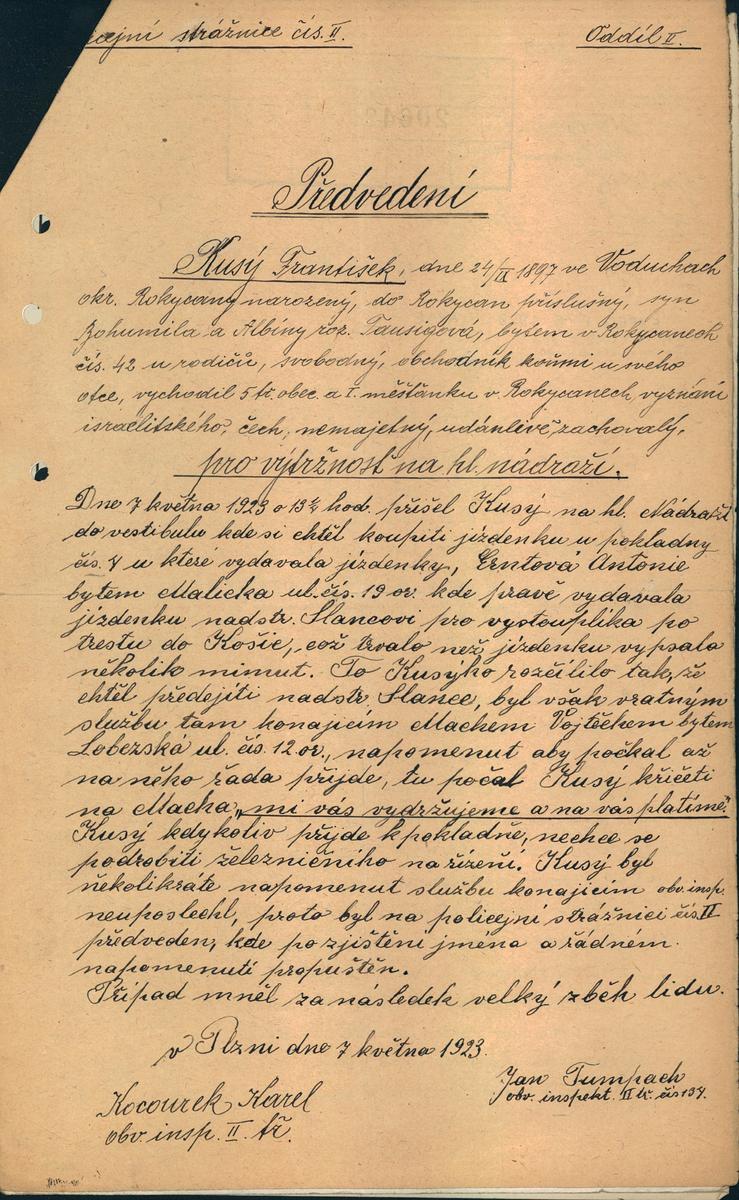 icejní strážnice čís. II. Oddíl II.
Předvedení
Kusý František, dne 24/IX 1897 ve Voduchach
okr. Rokycany narozený, do Rokycan příslušný, syn
Bohumila a Albíny roz. Tausigová, bytem v Rokycanech
čís. 42 u rodičů, svobodný, obchodník koňmi u svého
otce, vychodil 5 tř. obec. a I. měšťanku v Rokycanech, vyznání
israelitského, čech, nemajetný, udánlivě zachovalý,
pro výtržnost na hl. nádraží.
Dne 7 května 1923 o hod. přišel Kusý na hl. Nádraží
do vestibulu kde si chtěl koupiti jízdenku u pokladny
čís. 7 u které vydavala jízdenky, Erntová Antonie
bytem Malicka ul. čís. 19 or. kde pravě vydavala
jízdenku nadstr. Slancovi pro vystouplika po
trestu do Košic, což trvalo než jízdenku vypsala
několik mimut. To Kusýko rozčílilo tak, že
chtěl předejíti nadstr Slance, byl však vratným
službu tam konajicím Machem Vojtěchem bytem
Lobezská ul. čís. 12 or., napomenut aby počkal až
na něho řada přijde, tu počal Kusý křičeti
na Macha „mi vás vydržujeme a na vás platíme."
Kusý kdykoliv přijde k pokladně, nechce se
podrobiti železničního nařízení. Kusý byl
několikráte napomenut službu konajicim obv. insp.
neuposlechl, proto byl na policejní strážnici čís. II
předveden, kde po zjištění jména a řádném
napomenutí propuštěn.
Případ mněl za následek velký zběh lidu.
v Plzni dne 7 května 1923.
Jan Tumpach
obv. inspekt. II tř. čís 137.
Kocourek Karel
obv. insp. II. tř.